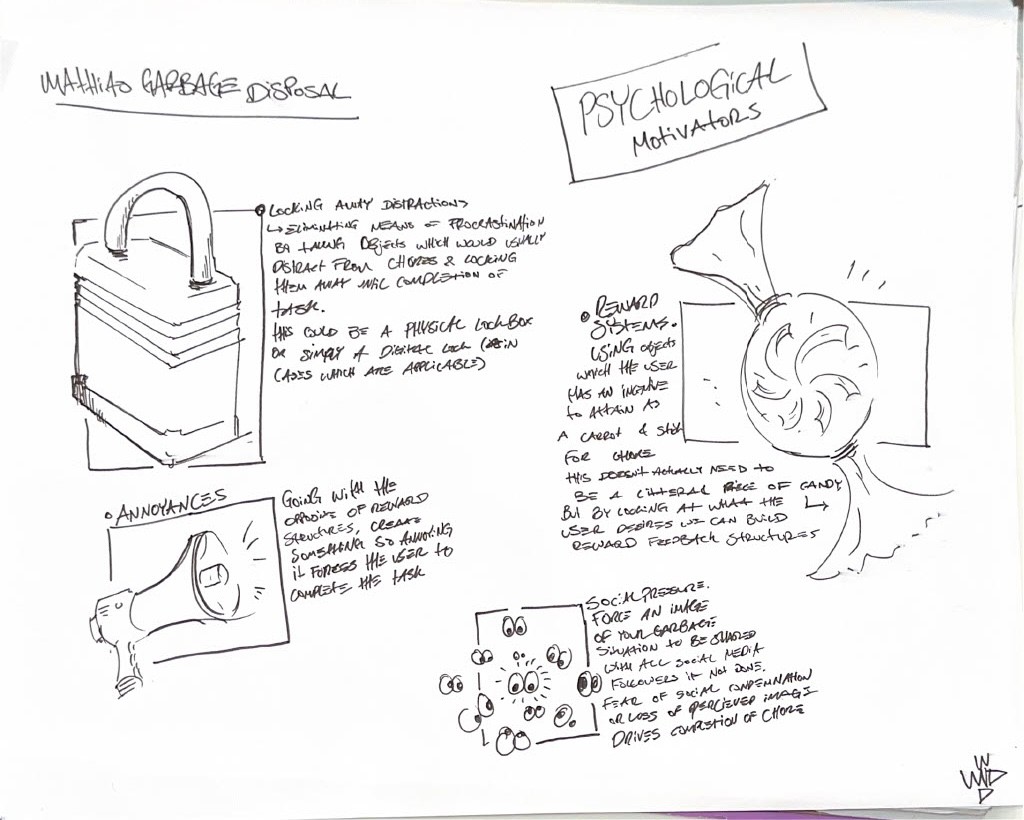 MATHIAS GARBAGE DISPOSAL
PSYCHOLOGICAL
MOTIVATORS
LOCKING AWAY DISTRACTIONS
ELIMINATING MEANS OF PROCRASTINATION
BY TAKING OBJECTS WHICH WOULD USUALLY
DISTRACT FROM CHORES & LOCKING
THEM AWAY UNTIL COMPLETION OF
TASK.
THIS COULD BE A PHYSICAL LOCKBOX
OR SIMPLY A DIGITAL LOCK
CASES WHICH ARE APPLICABLE)
REWARD
SYSTEMS.
USING OBJECTS
WHICH THE USER
HAS AN INCENTIVE
TO ATTAIN AS
A CARROT & STICK
FOR CHORE
THIS DOESN'T ACTUALLY NEED TO
BE A LITTERAL PIECE OF CANDY
BUT BY LOOKING AT WHAT THE
USER DESIRES WE CAN BUILD
REWARD FEEDBACK STRUCTURES
ANNOYANCES
GOING WITH THE
OPPOSITE OF REWARD
STRUCTURES, CREATE
SOMETHING SO ANNOYING
IT FORCES THE USER TO
COMPLETE THE TASK
SOCIAL PRESSURE.
FORCE AN IMAGE
OF YOUR GARBAGE
SITUATION TO BE SHARED
WITH ALL SOCIAL MEDIA
FOLLOWERS IF NOT DONE.
FEAR OF SOCIAL CONDEMNATION
OR LOSS OF PERCIEVED IMAGE
DRIVES COMPLETION OF CHORE